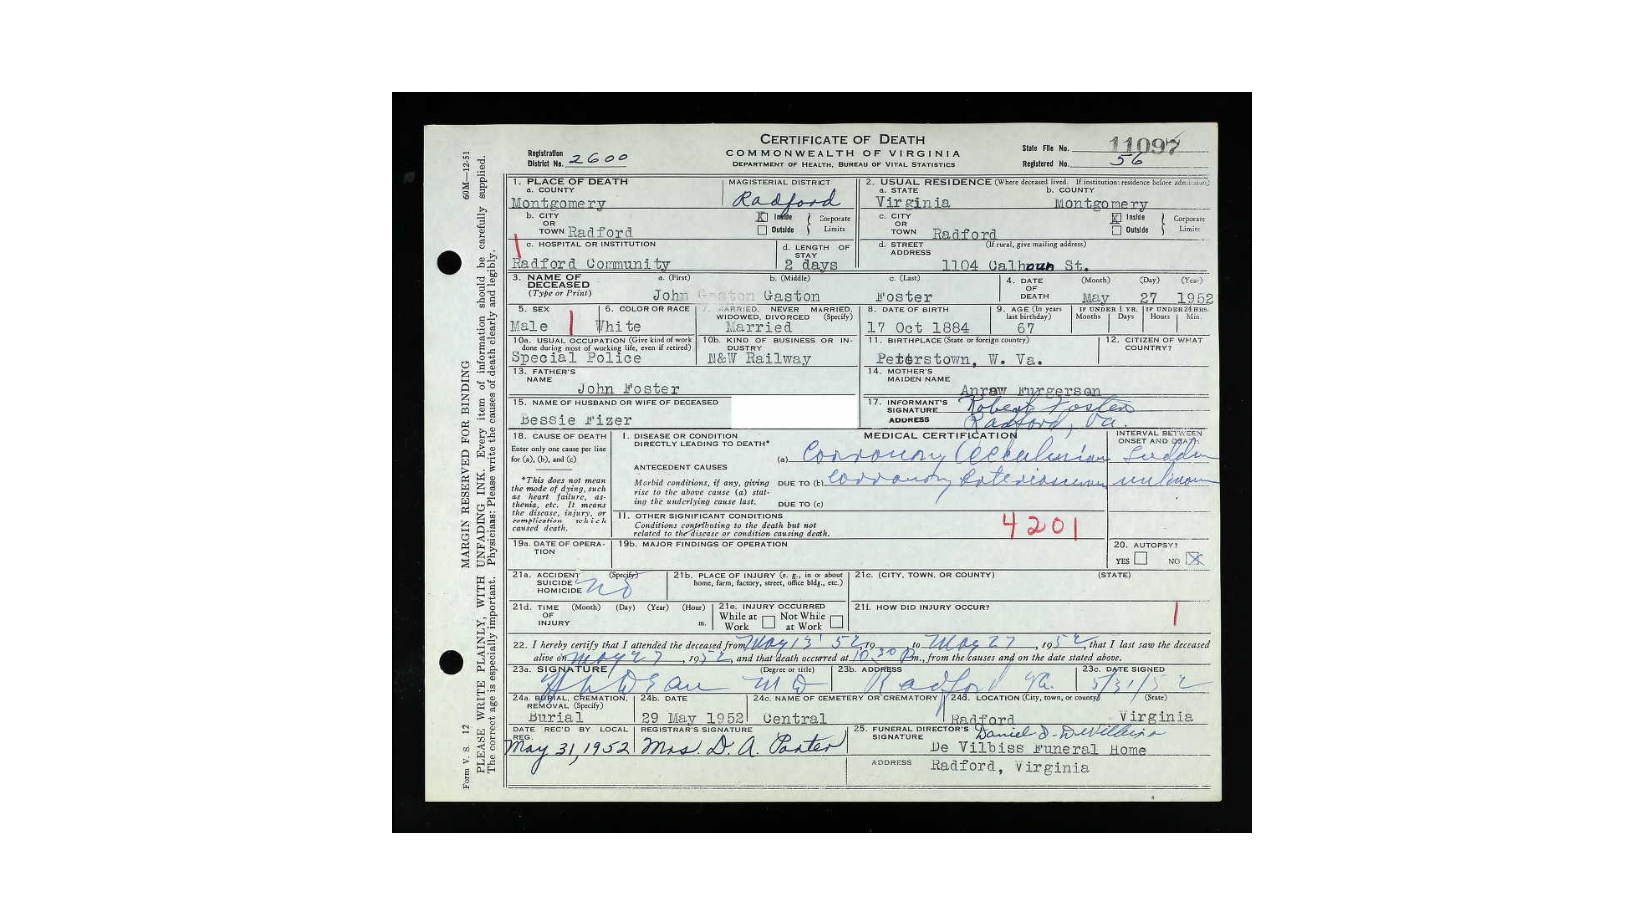 CERTIFICATE OF DEATH
COMMONWEALTH OF VIRGINIA
DEPARTMENT OF HEALTH, BUREAU OF VITAL STATISTICS
Registration District No. 2600
State File No. 11097
Registered No. 56
60M—12-51
MARGIN RESERVED FOR BINDING
PLEASE WRITE PLAINLY, WITH UNFADING INK. Every item of information should be carefully supplied.
The correct age is especially important. Physicians: Please write the causes of death clearly and legibly.
Form V. S. 12
1. PLACE OF DEATH
a. COUNTY
Montgomery
MAGISTERIAL DISTRICT
Radford
b. CITY OR TOWN Radford
Inside Outside Corporate Limits
c. HOSPITAL OR INSTITUTION
Radford Community
d. LENGTH OF STAY
2 days
2. USUAL RESIDENCE (Where deceased lived. If institution: residence before admission)
a. STATE
Virginia
b. COUNTY
Montgomery
c. CITY OR TOWN Radford
Inside Outside Corporate Limits
d. STREET ADDRESS (If rural, give mailing address)
1104 Calhoun St.
3. NAME OF DECEASED (Type or Print)
a. (First) b. (Middle) c. (Last)
John Gaston Foster
4. DATE OF DEATH (Month) (Day) (Year)
May 27 1952
5. SEX
Male
6. COLOR OR RACE
White
7. MARRIED, NEVER MARRIED, WIDOWED, DIVORCED (Specify)
Married
8. DATE OF BIRTH
17 Oct 1884
9. AGE (In years last birthday)
67
IF UNDER 1 YR. Months Days
IF UNDER 24 HRS. Hours Min.
10a. USUAL OCCUPATION (Give kind of work done during most of working life, even if retired)
Special Police
10b. KIND OF BUSINESS OR INDUSTRY
N&W Railway
11. BIRTHPLACE (State or foreign country)
Peterstown, W. Va.
12. CITIZEN OF WHAT COUNTRY?
13. FATHER'S NAME
John Foster
14. MOTHER'S MAIDEN NAME
Furgerson
15. NAME OF HUSBAND OR WIFE OF DECEASED
Bessie Fizer
17. INFORMANT'S SIGNATURE Robert Foster
ADDRESS Radford, Va.
18. CAUSE OF DEATH
Enter only one cause per line for (a), (b), and (c)
*This does not mean the mode of dying, such as heart failure, asthenia, etc. It means the disease, injury, or complication which caused death.
MEDICAL CERTIFICATION
INTERVAL BETWEEN ONSET AND DEATH
I. DISEASE OR CONDITION DIRECTLY LEADING TO DEATH*
(a) Coronary Occlusion Sudden
ANTECEDENT CAUSES
Morbid conditions, if any, giving rise to the above cause (a) stating the underlying cause last.
DUE TO (b) Coronary unknown
DUE TO (c)
II. OTHER SIGNIFICANT CONDITIONS
Conditions contributing to the death but not related to the disease or condition causing death.
4201
19a. DATE OF OPERATION
19b. MAJOR FINDINGS OF OPERATION
20. AUTOPSY?
YES NO X
21a. ACCIDENT SUICIDE HOMICIDE (Specify)
NO
21b. PLACE OF INJURY (e. g., in or about home, farm, factory, street, office bldg., etc.)
21c. (CITY, TOWN, OR COUNTY) (STATE)
21d. TIME OF INJURY (Month) (Day) (Year) (Hour) m.
21e. INJURY OCCURRED
While at Work Not While at Work
21f. HOW DID INJURY OCCUR?
22. I hereby certify that I attended the deceased from May 13 '52, 19 to May 27, 1952, that I last saw the deceased
alive on May 27, 1952, and that death occurred at 10:30 P.m., from the causes and on the date stated above.
23a. SIGNATURE (Degree or title)
Dean M D
23b. ADDRESS
Radford Va.
23c. DATE SIGNED
5/31/52
24a. BURIAL, CREMATION, REMOVAL (Specify)
Burial
24b. DATE
29 May 1952
24c. NAME OF CEMETERY OR CREMATORY
Central
24d. LOCATION (City, town, or county) (State)
Radford Virginia
DATE REC'D BY LOCAL REG.
May 31, 1952
REGISTRAR'S SIGNATURE
Mrs. D. A. Porter
25. FUNERAL DIRECTOR'S SIGNATURE
Daniel D. DeVilbiss
De Vilbiss Funeral Home
ADDRESS Radford, Virginia